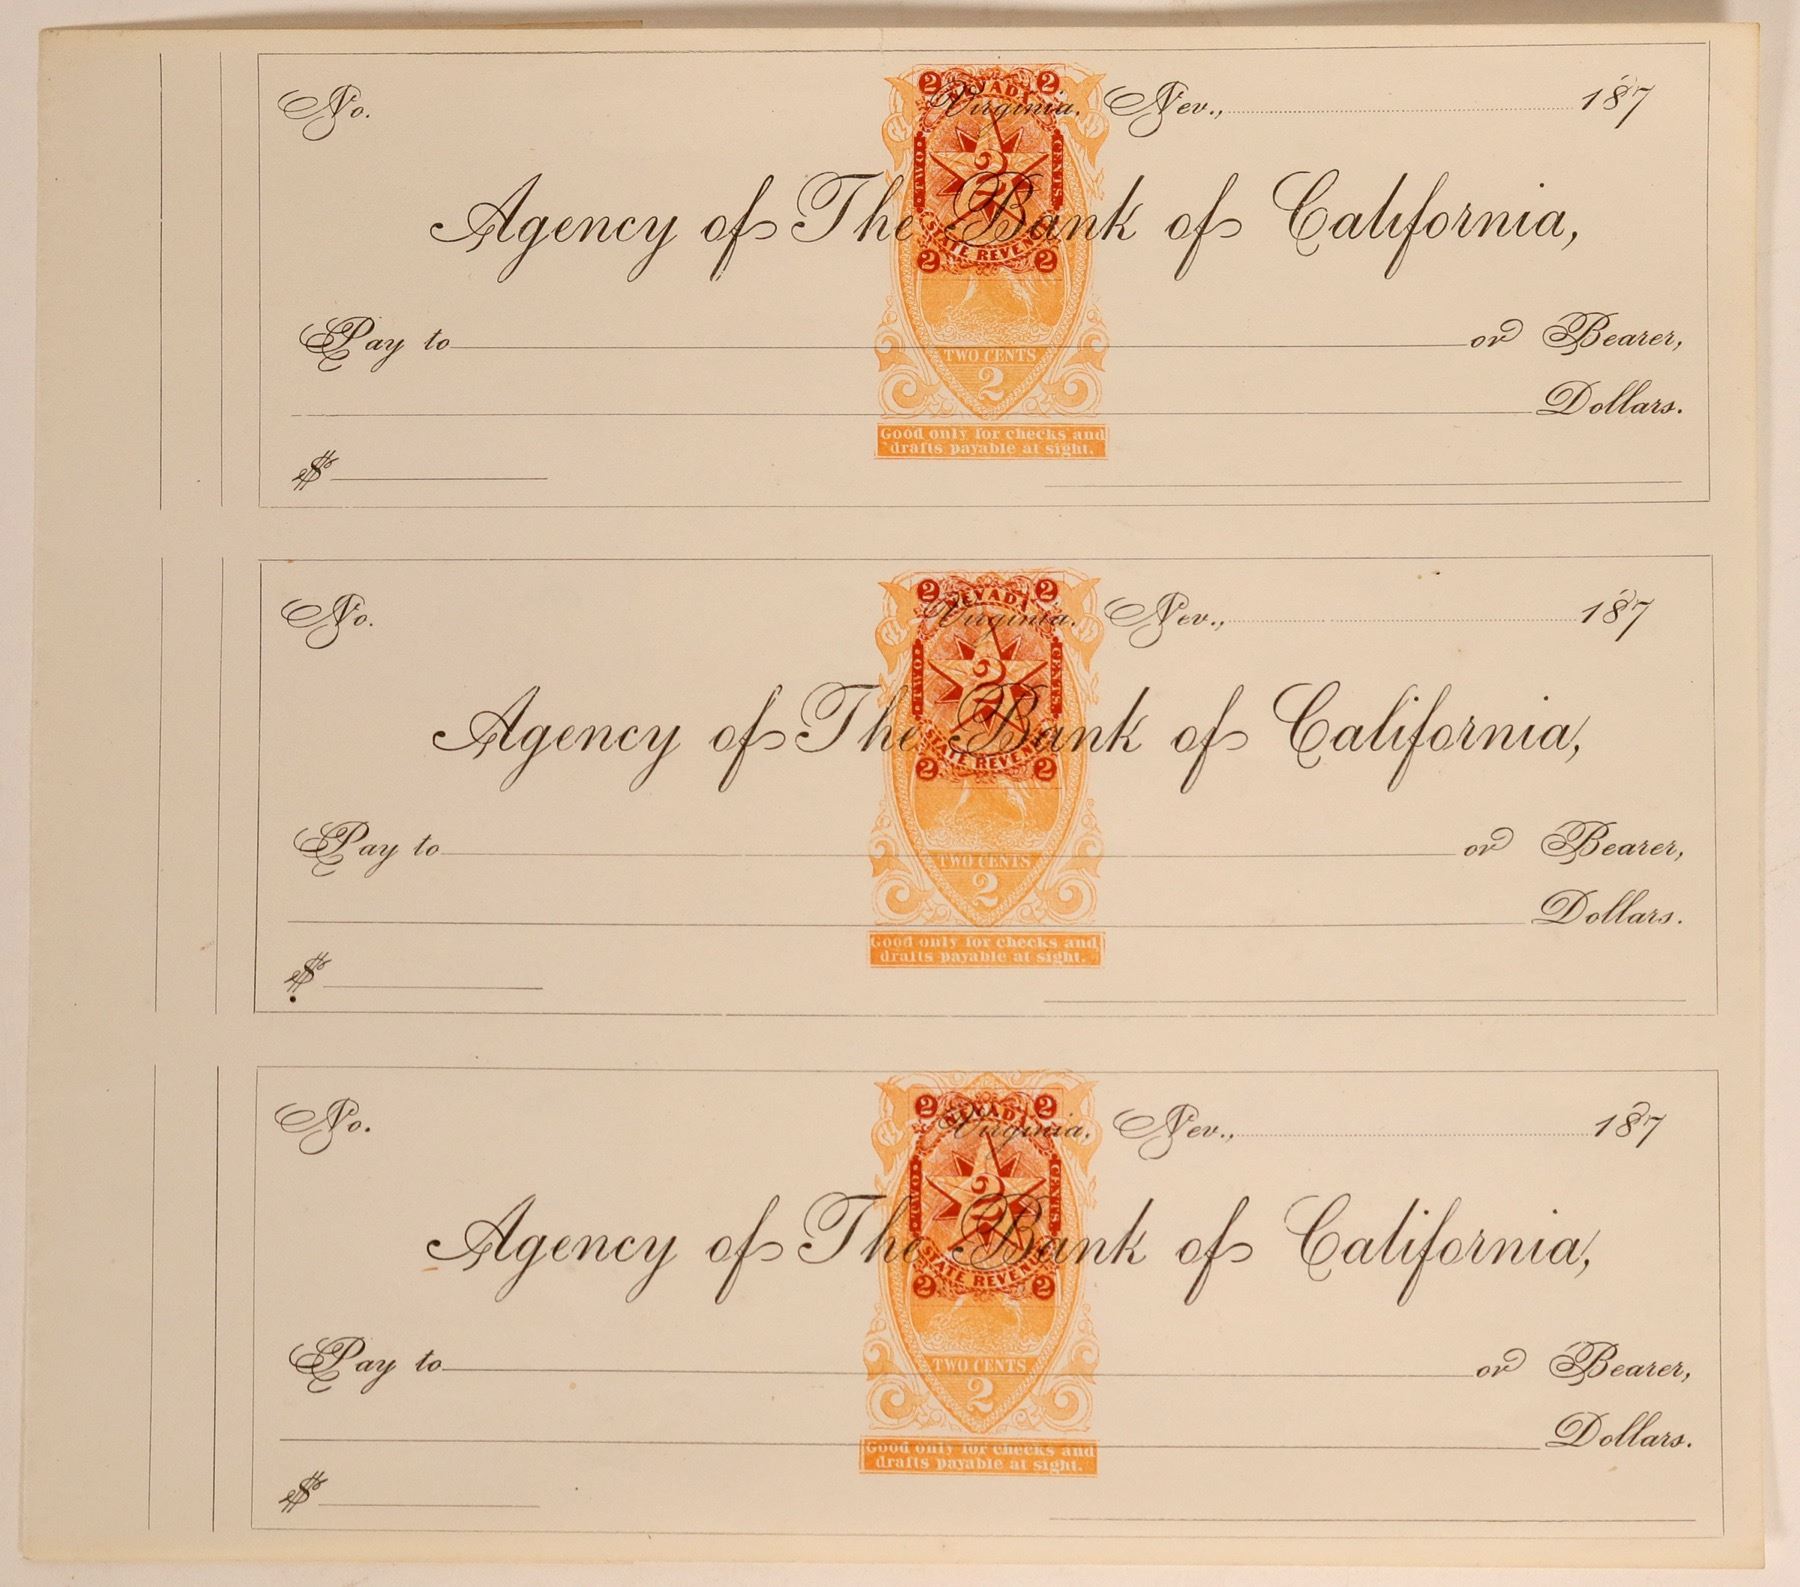 No. Virginia, Nev., 187
Agency of The Bank of California,
Pay to or Bearer,
Dollars.
$
2 2
NEVADA
TWO CENTS
2
STATE REVENUE
2 2
TWO CENTS
2
Good only for checks and
drafts payable at sight.
No. Virginia, Nev., 187
Agency of The Bank of California,
Pay to or Bearer,
Dollars.
$
2 2
NEVADA
TWO CENTS
2
STATE REVENUE
2 2
TWO CENTS
2
Good only for checks and
drafts payable at sight.
No. Virginia, Nev., 187
Agency of The Bank of California,
Pay to or Bearer,
Dollars.
$
2 2
NEVADA
TWO CENTS
2
STATE REVENUE
2 2
TWO CENTS
2
Good only for checks and
drafts payable at sight.